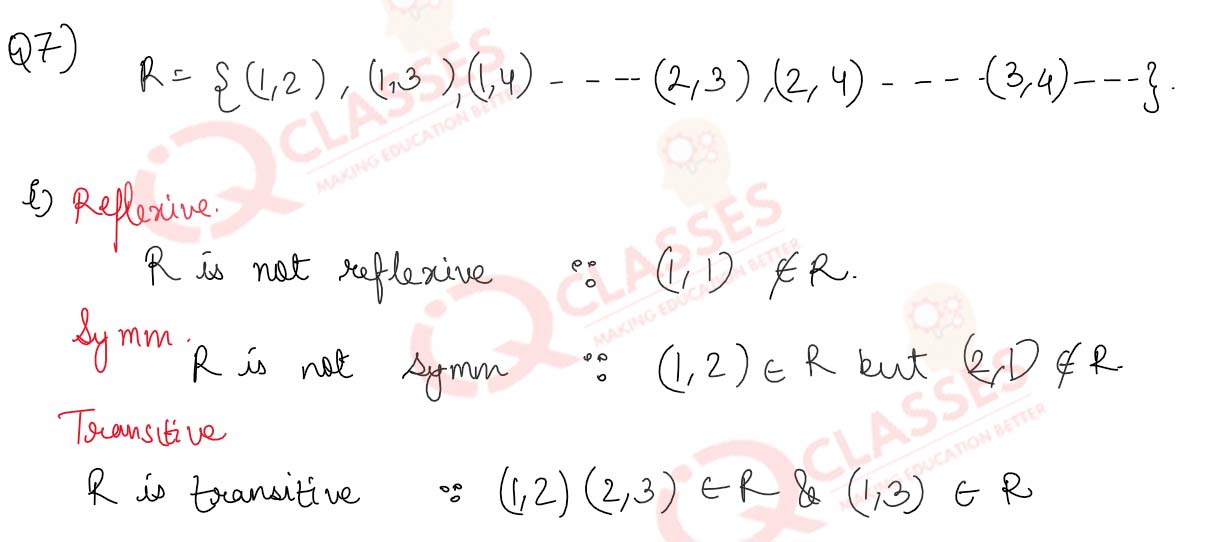 Q7)
R = {(1,2), (1,3), (1,4) - - -- (2,3), (2, 4) - -- - -(3,4)---}.
i) Reflexive.
R is not reflexive ∵ (1, 1) ∉ R.
Symm.
R is not symm ∵ (1,2) ∈ R but (2,1) ∉ R.
Transitive
R is transitive ∵ (1,2) (2,3) ∈ R & (1,3) ∈ R
iQ CLASSES
MAKING EDUCATION BETTER
iQ CLASSES
MAKING EDUCATION BETTER
iQ CLASSES
MAKING EDUCATION BETTER